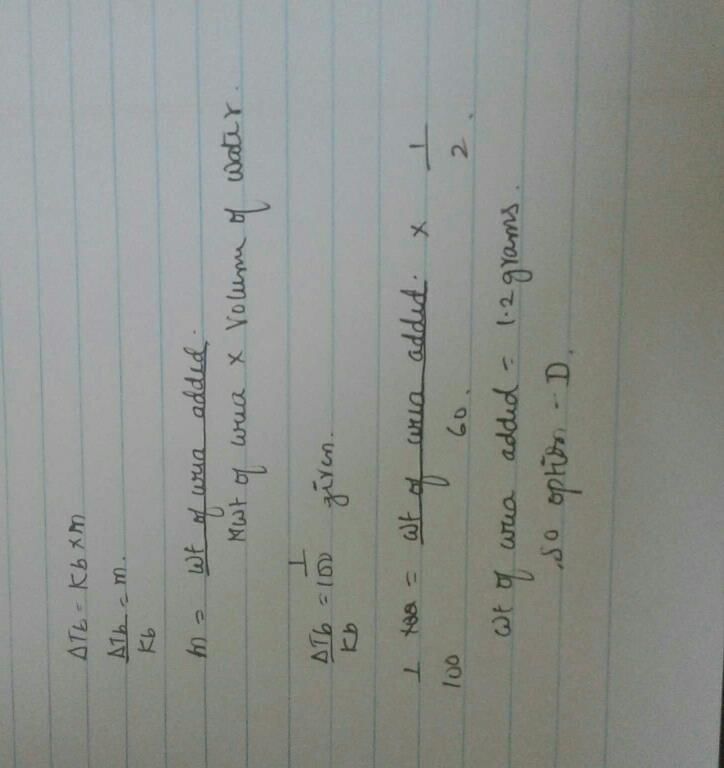 ΔTb = Kb × m
ΔTb = m.
Kb
m = Wt of urea added.
Mwt of urea × Volume of water.
ΔTb = 1 given.
Kb 100
1 = Wt of urea added. × 1
100 60. 2.
Wt of urea added = 1.2 grams.
so option - D.